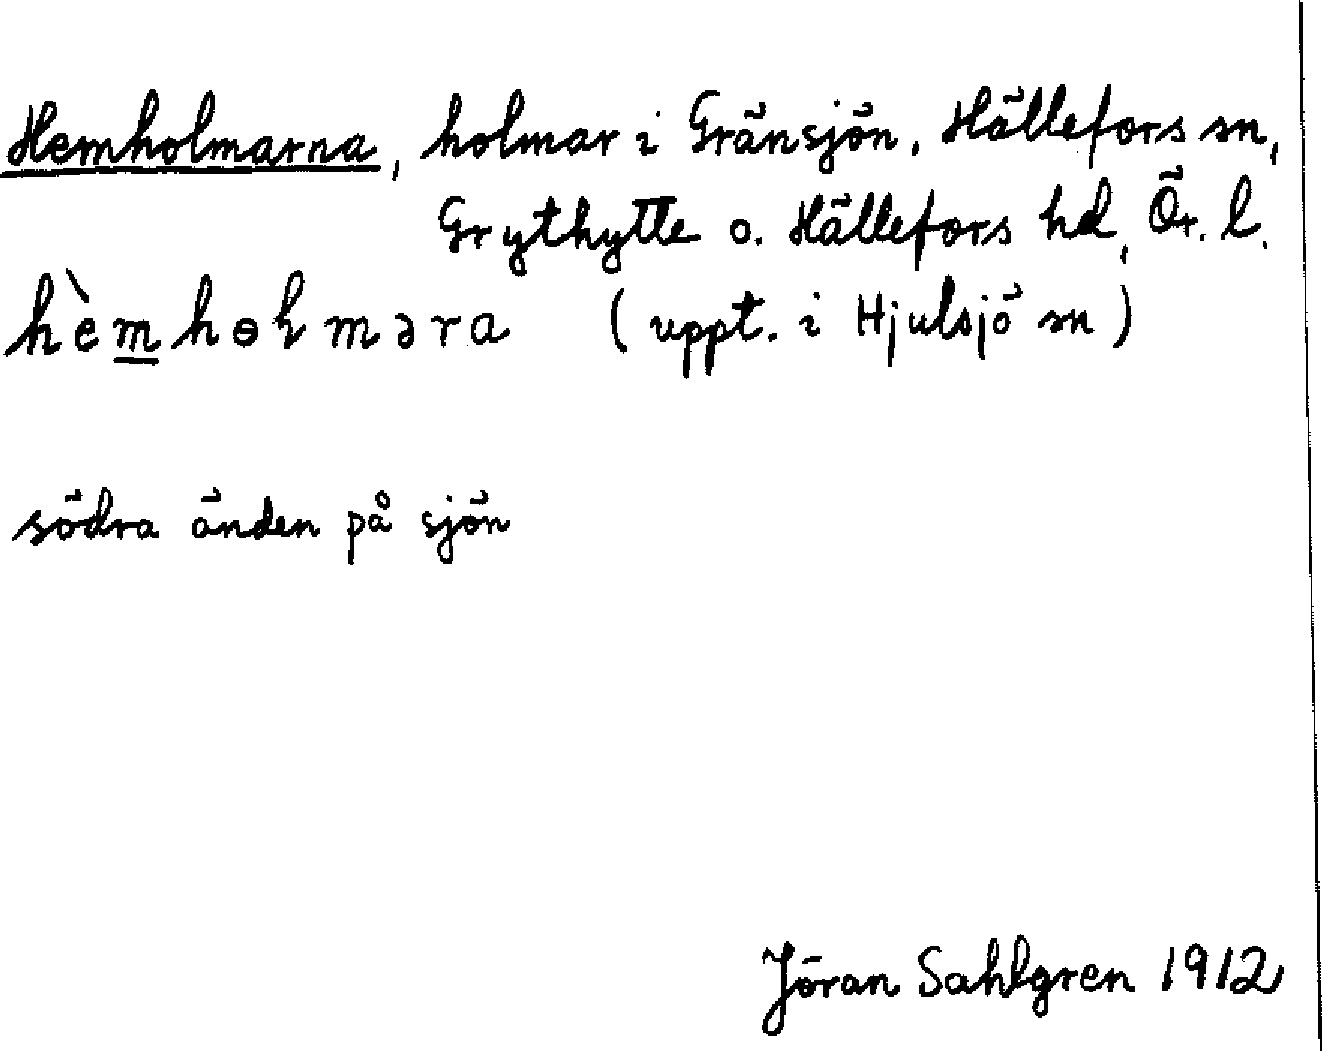 Hemholmarna, holmar i Gränsjön, Hällefors sn,
Grythytte o. Hällefors hd, Ör. l.
hèmhɵɽməra (uppt. i Hjulsjö sn)
södra änden på sjön
Jöran Sahlgren 1912